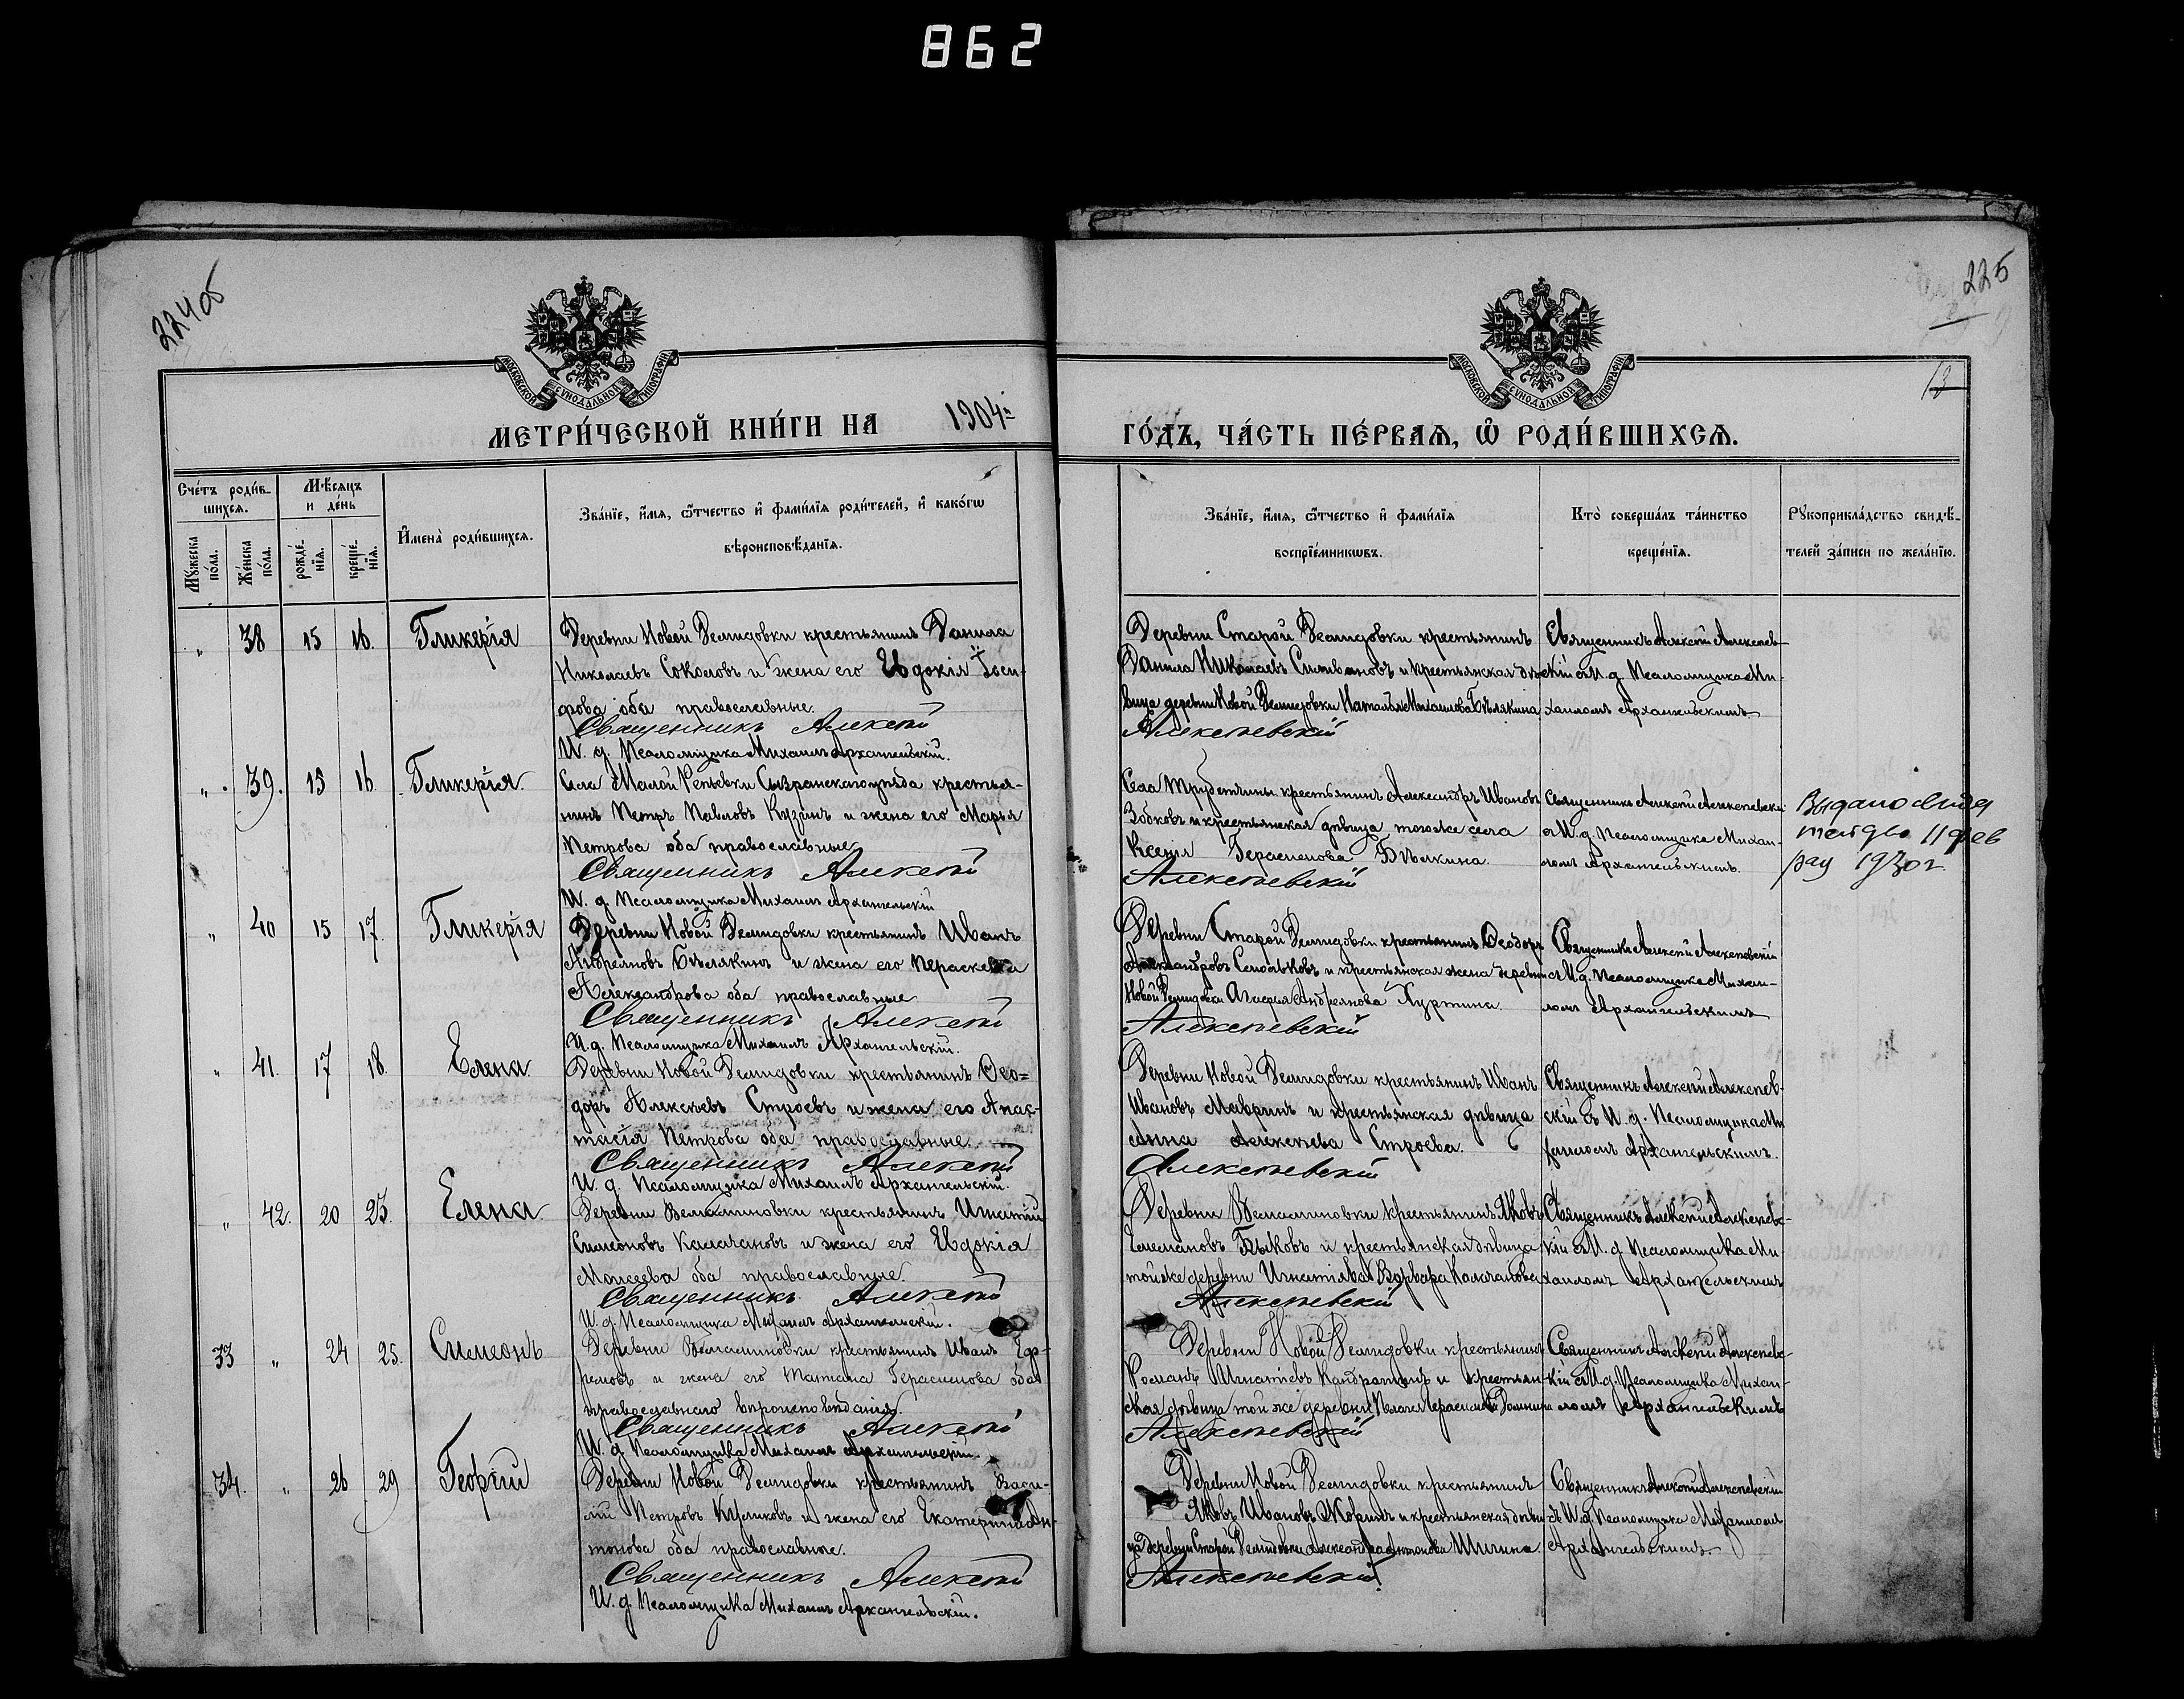 862
224об
225
13
МОСКОВСКОЙ СѴНОДАЛЬНОЙ ТИПОГРАФІИ
МОСКОВСКОЙ СѴНОДАЛЬНОЙ ТИПОГРАФІИ
МЕТРИ́ЧЕСКОЙ КНИ́ГИ НА 1904й
ГО́ДЪ, ЧА́СТЬ ПЕ́РВАѦ, Ѽ РОДИ́ВШИХСѦ.
Сче́тъ роди́в-
шихсѧ.
Мꙋ́жеска по́ла.
Же́нска по́ла.
Мѣ́сѧцъ
и де́нь
рожде́-нїѧ.
креще́-нїѧ.
И҆мена̀ роди́вшихсѧ.
Зва́нїе, и҆́мѧ, ѻ҆́тчество и҆ фами́лїѧ роди́телей, и҆ како́гѡ
вѣроисповѣ́данїѧ.
Зва́нїе, и҆́мѧ, ѻ҆́тчество и҆ фами́лїѧ
воспрїе́мникѡвъ.
Кто̀ соверша́лъ та́инство
креще́нїѧ.
Рꙋкоприкла́дство свидѣ́-
телей за́писи по жела́нїю.
" 38 15 16. Гликерія
Деревни Новой Демидовки крестьянинъ Данила
Николаевъ Соколовъ и жена его Евдокія Іоси-
фова оба православные.
Священникъ Алексій
И. д. Псаломщика Михаилъ Архангельскій.
Деревни Старой Демидовки крестьянинъ
Данила Николаевъ и крестьянская дѣ-
вица деревни Новой Демидовки Наталья Михаилова Бѣлякина
Алексѣевскій
Священникъ Алексій Алексѣев-
скій съ И. д. Псаломщика Ми-
хаиломъ Архангельскимъ
" 39. 15 16. Гликерія.
Села Малой Репьевки Сызранскаго уѣзда крестья-
нинъ Петръ Павловъ Кузинъ и жена его Марья
Петрова оба православные
Священникъ Алексій
И. д. Псаломщика Михаилъ Архангельскій
Села крестьянинъ Александръ Ивановъ
Зобковъ и крестьянская дѣвица того же села
Ксенія Герасимова Бѣлкина.
Алексѣевскій
Священникъ Алексій Алексѣевскій
съ И. д. Псаломщика Михаи-
ломъ Архангельскимъ.
Выдано
11 фев
1930 г.
" 40 15 17. Гликерія
Деревни Новой Демидовки крестьянинъ Иванъ
Андреяновъ Бѣлякинъ и жена его Параскева
Александрова оба православные
Священникъ Алексій
И. д. Псаломщика Михаилъ Архангельскій.
Деревни Старой Демидовки крестьянинъ Ѳеодоръ
Александровъ и крестьянская жена деревни
Новой Демидовки Агафія Андреянова Хуртина.
Алексѣевскій
Священникъ Алексій Алексѣевскій
съ И. д. Псаломщика Михаи-
ломъ Архангельскимъ
" 41. 17 18. Елена.
Деревни Новой Демидовки крестьянинъ Ѳео=
доръ Алексѣевъ Строевъ и жена его Анас-
тасія Петрова оба православные.
Священникъ Алексій
И. д. Псаломщика Михаилъ Архангельскій.
Деревни Новой Демидовки крестьянинъ Иванъ
Ивановъ Мавринъ и крестьянская дѣвица
Анна Алексѣева Строева.
Алексѣевскій
Священникъ Алексій Алексѣев-
скій съ И. д. Псаломщика Ми
хаиломъ Архангельскимъ.
" 42. 20 23. Елена.
Деревни крестьянинъ Игнатій
Симеоновъ Калачановъ и жена его Евдокія
Моисеева оба православные.
Священникъ Алексій
И. д. Псаломщика Михаилъ Архангельскій.
Деревни крестьянинъ Яковъ
Быковъ и крестьянская дѣвица
той же деревни Игнатіева Варвара Калачанова
Алексѣевскій
Священникъ Алексій Алексѣевс-
кій съ И. д. Псаломщика Ми-
хаиломъ Архангельскимъ
33 " 24 25. Симеонъ
Деревни крестьянинъ Иванъ Еф-
ремовъ и жена его Татіана Герасимова оба
православнаго вѣроисповѣданія.
Священникъ Алексій
И. д. Псаломщика Михаилъ Архангельскій.
Деревни Новой Демидовки крестьянинъ
Романъ Игнатіевъ Кондратинъ и крестьян-
ская дѣвица той же деревни
Алексѣевскій
Священникъ Алексій Алексѣевс-
кій съ И. д. Псаломщика Михаи-
ломъ Архангельскимъ
34. " 26 29 Георгій
Деревни Новой Демидовки крестьянинъ Васи-
лій Петровъ Куликовъ и жена его Екатерина Ан-
тонова оба православные.
Священникъ Алексій
И. д. Псаломщика Михаилъ Архангельскій.
Деревни Новой Демидовки крестьянинъ
Яковъ Ивановъ и крестьянская дѣви-
ца деревни Старой Демидовки Александра Антонова Шигина.
Алексѣевскій
Священникъ Алексій Алексѣевскій
съ И. д. Псаломщика Михаиломъ
Архангельскимъ.